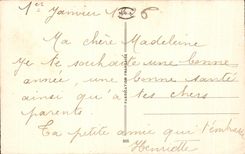 1er Janvier
Ma chère Madeleine
Je te souhaite une bonne
année, une bonne santé
ainsi qu'à tes chers
parents.
Ta petite amie qui t'embrasse
Henriette